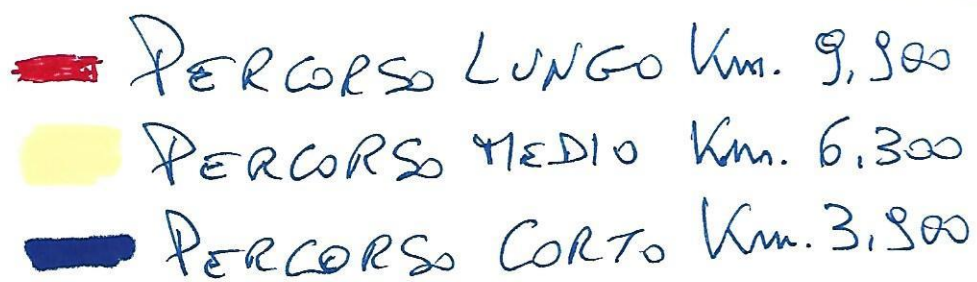 PERCORSO LUNGO Km. 9,900
PERCORSO MEDIO Km. 6,300
PERCORSO CORTO Km. 3,900